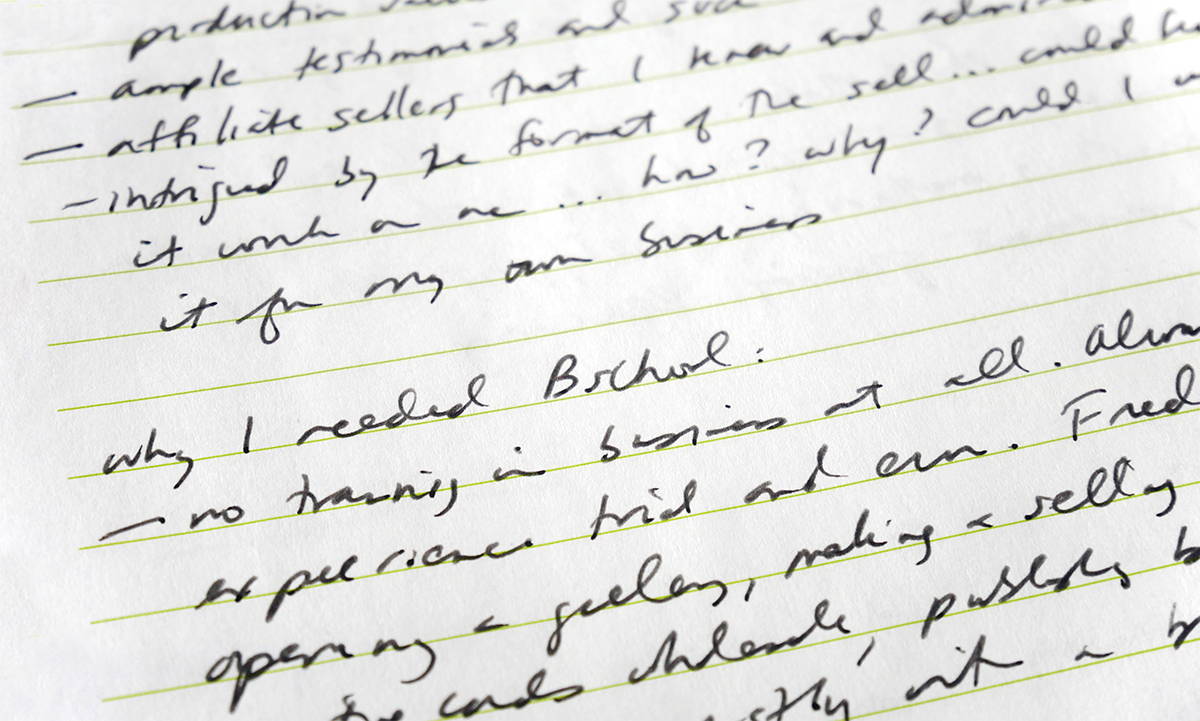 production
— ample testimonials and
— affiliate sellers that I know and
— intrigued by the format of the sell... could
it work on me... how? why? could I
it for my own business
why I needed Bschool:
— no training in business at all.
experience trial and error. Fred
opening a gallery, making & selling
cards wholesale, publishing
with a